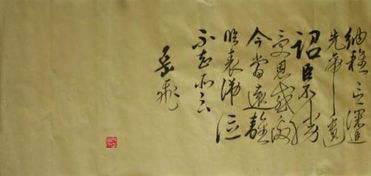 納雅言深追
先帝遺
詔臣不勝
受恩感激
今當遠離
臨表涕泣
不知所云
岳飛